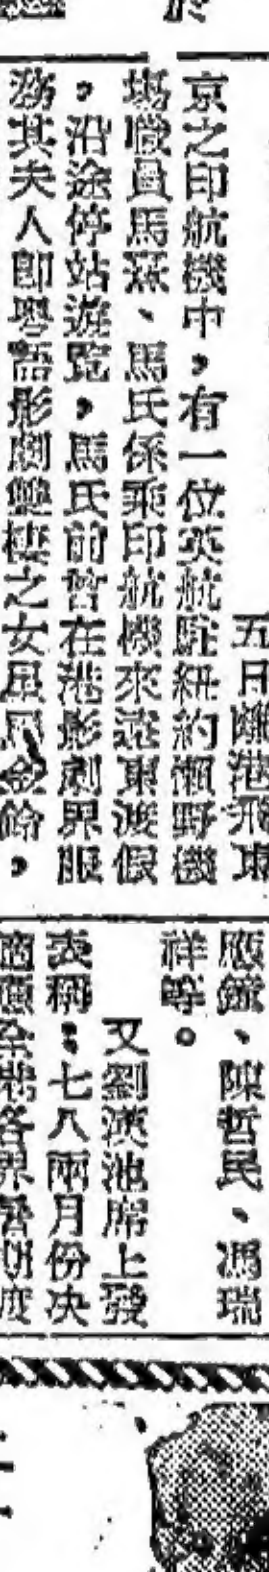 五日離港飛東
京之印航機中，有一位英航駐紐約懶野機
塲職員馬
、馬氏係乘印航機來遠東渡假
，沿途停站遊覽，馬氏前曾在港影劇界服
務其夫人即粵語影劇雙棲之女星
金鈴，
應鎏、陳哲民、馮瑞
祥等。
又劉漢池席上發
表稱：七八兩月份决
全港各界